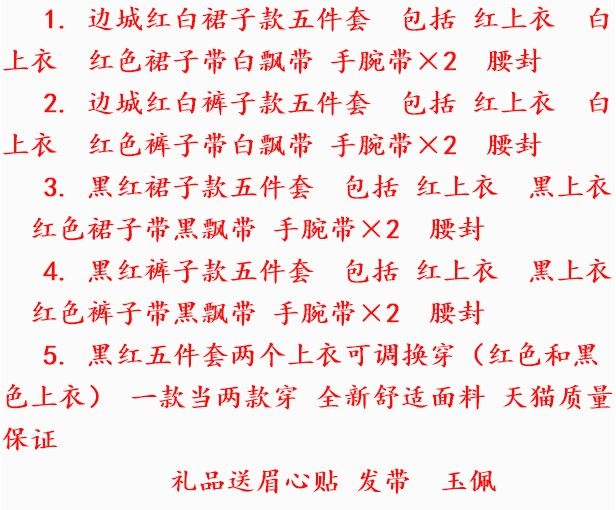 1. 边城红白裙子款五件套 包括 红上衣 白
上衣 红色裙子带白飘带 手腕带×2 腰封
2. 边城红白裤子款五件套 包括 红上衣 白
上衣 红色裤子带白飘带 手腕带×2 腰封
3. 黑红裙子款五件套 包括 红上衣 黑上衣
红色裙子带黑飘带 手腕带×2 腰封
4. 黑红裤子款五件套 包括 红上衣 黑上衣
红色裤子带黑飘带 手腕带×2 腰封
5. 黑红五件套两个上衣可调换穿（红色和黑
色上衣） 一款当两款穿 全新舒适面料 天猫质量
保证
礼品送眉心贴 发带 玉佩